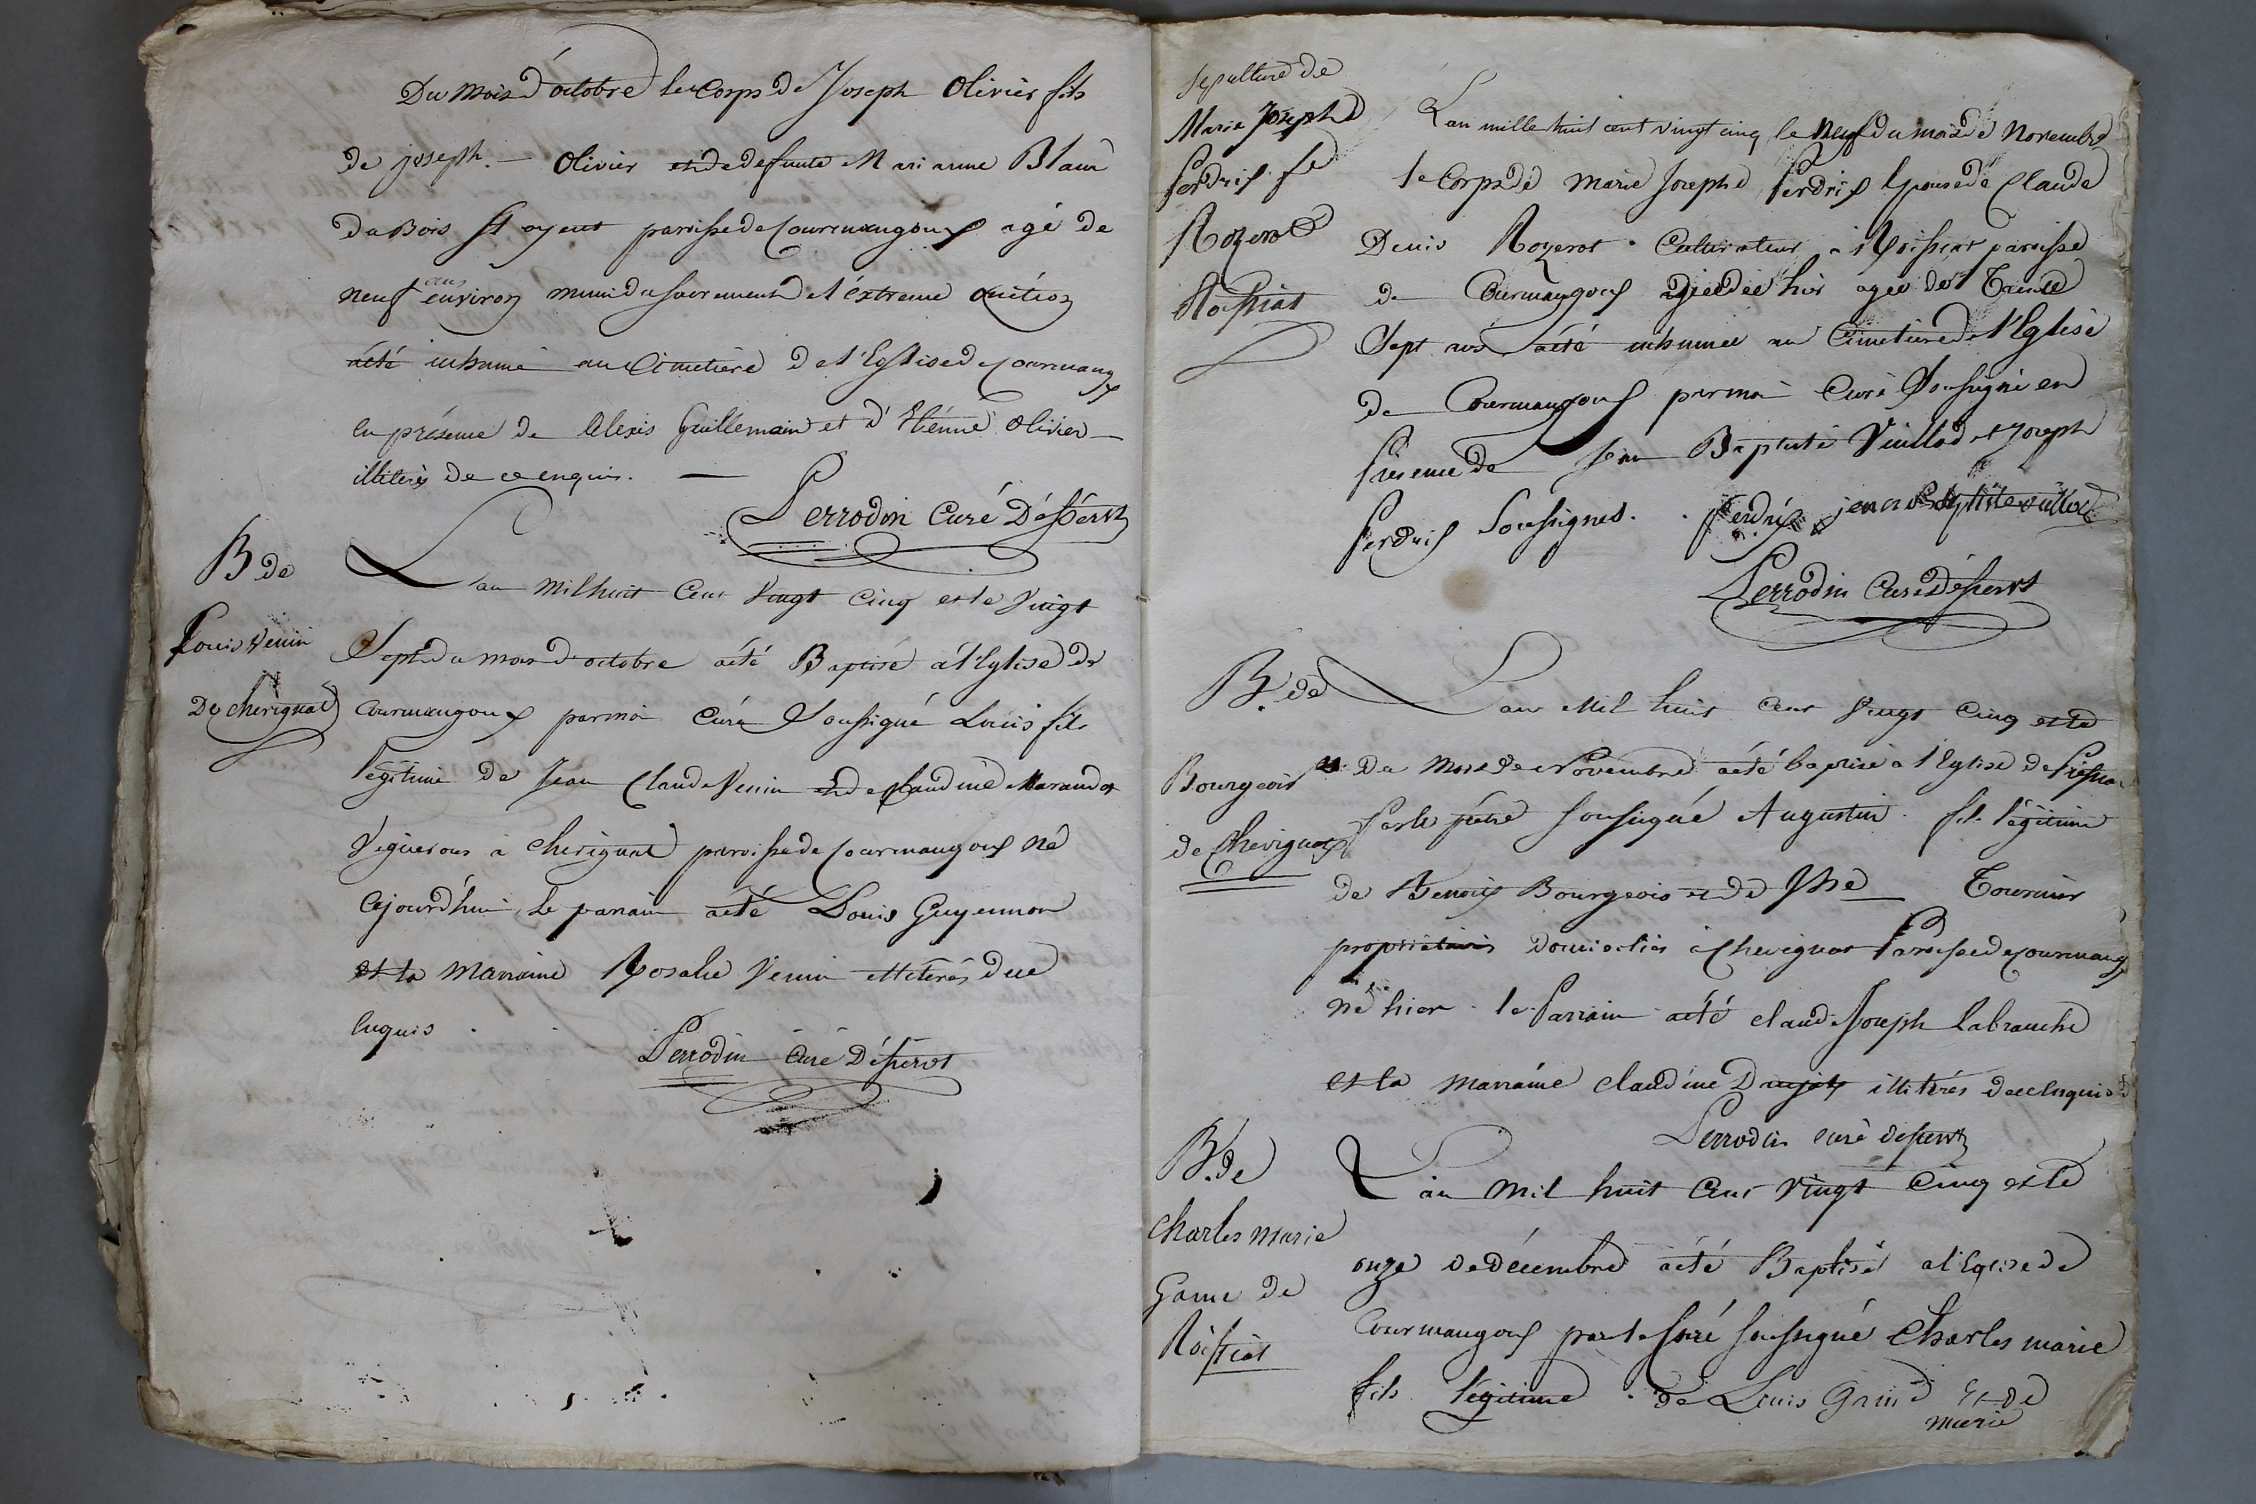 Du mois d'octobre le Corps de Joseph Olivier fils
de joseph. — Olivier et de defunte Marianne Blanc
du Bois St oyent paroisse de Courmangoux agé de
neuf ans environ muni du sacrement de l'éxtreme onction
a été inhumé au Cimetière de l'Eglise de Courmang
en présence de Alexis Guillemain et d'Etienne Olivier —
illiterés de ce enquis. —
Perrodin Curé Déssert
B de
Louis Venin
De cherignat
L'an Mil huit Cent Vingt Cinq et le Vingt
Sept du mois d'octobre a été Baptisé a l'Eglise de
Courmangoux par moi Curé Soussigné Louis fils
légitime de Jean Claude Venin et de Claudine Marandet
Vignerons a cherignat paroisse de Courmangoux né
Ajourd'hui le parain a été Louis Guyennon
et la Marraine Rosalie Venin illiterés de ce
enquis
Perrodin Curé Déssert
Sepulture de
Marie Josephe
Perdrix fe
Rozerot
Roissiat
L'an mille huit cent vingt cinq le neuf du mois de Novembre
le Corps de Marie Josephe Perdrix Epouse de Claude
Denis Rozerot Cultivateur à Roissiat paroisse
de Courmangoux décédée hier agée de Trente
Sept ans a été inhumée au Cimetière de l'Eglise
de Courmangoux par moi Curé Soussigné en
Présence de Jean Baptiste Vuillod et Joseph
Perdrix Soussignés. Perdrix jean Baptiste vuillod
Perrodin Curé Déssert
B. de
Bourgeois
de Chevignat
L'an Mil huit Cent Vingt Cinq et le
du Mois de Novembre a été baptisé a l'Eglise de
Par le prétre Soussigné Augustin fils légitime
de Benoit Bourgeois et de Jhe — Tournier
propriétaires domiciliés à Chevignat Paroisse de Courmang
né hier le Parrain a été claude Joseph Labranche
et la marraine claudine illitérés de ce enquis
Perrodin curé dessert
B. de
Charles Marie
Game de
Roissiat
L'an Mil huit Cent Vingt Cinq et le
onze de décembre a été Baptisé a l'Eglise de
Courmangoux par le Curé Soussigné Charles marie
fils légitime de Louis et de
marie